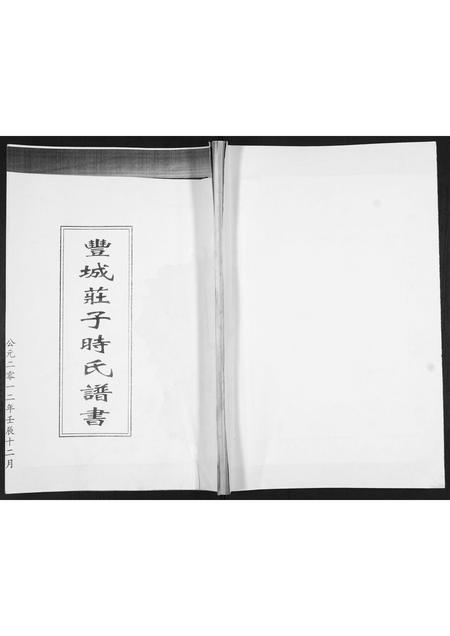 豐城莊子時氏譜書
公元二零一二年壬辰十二月